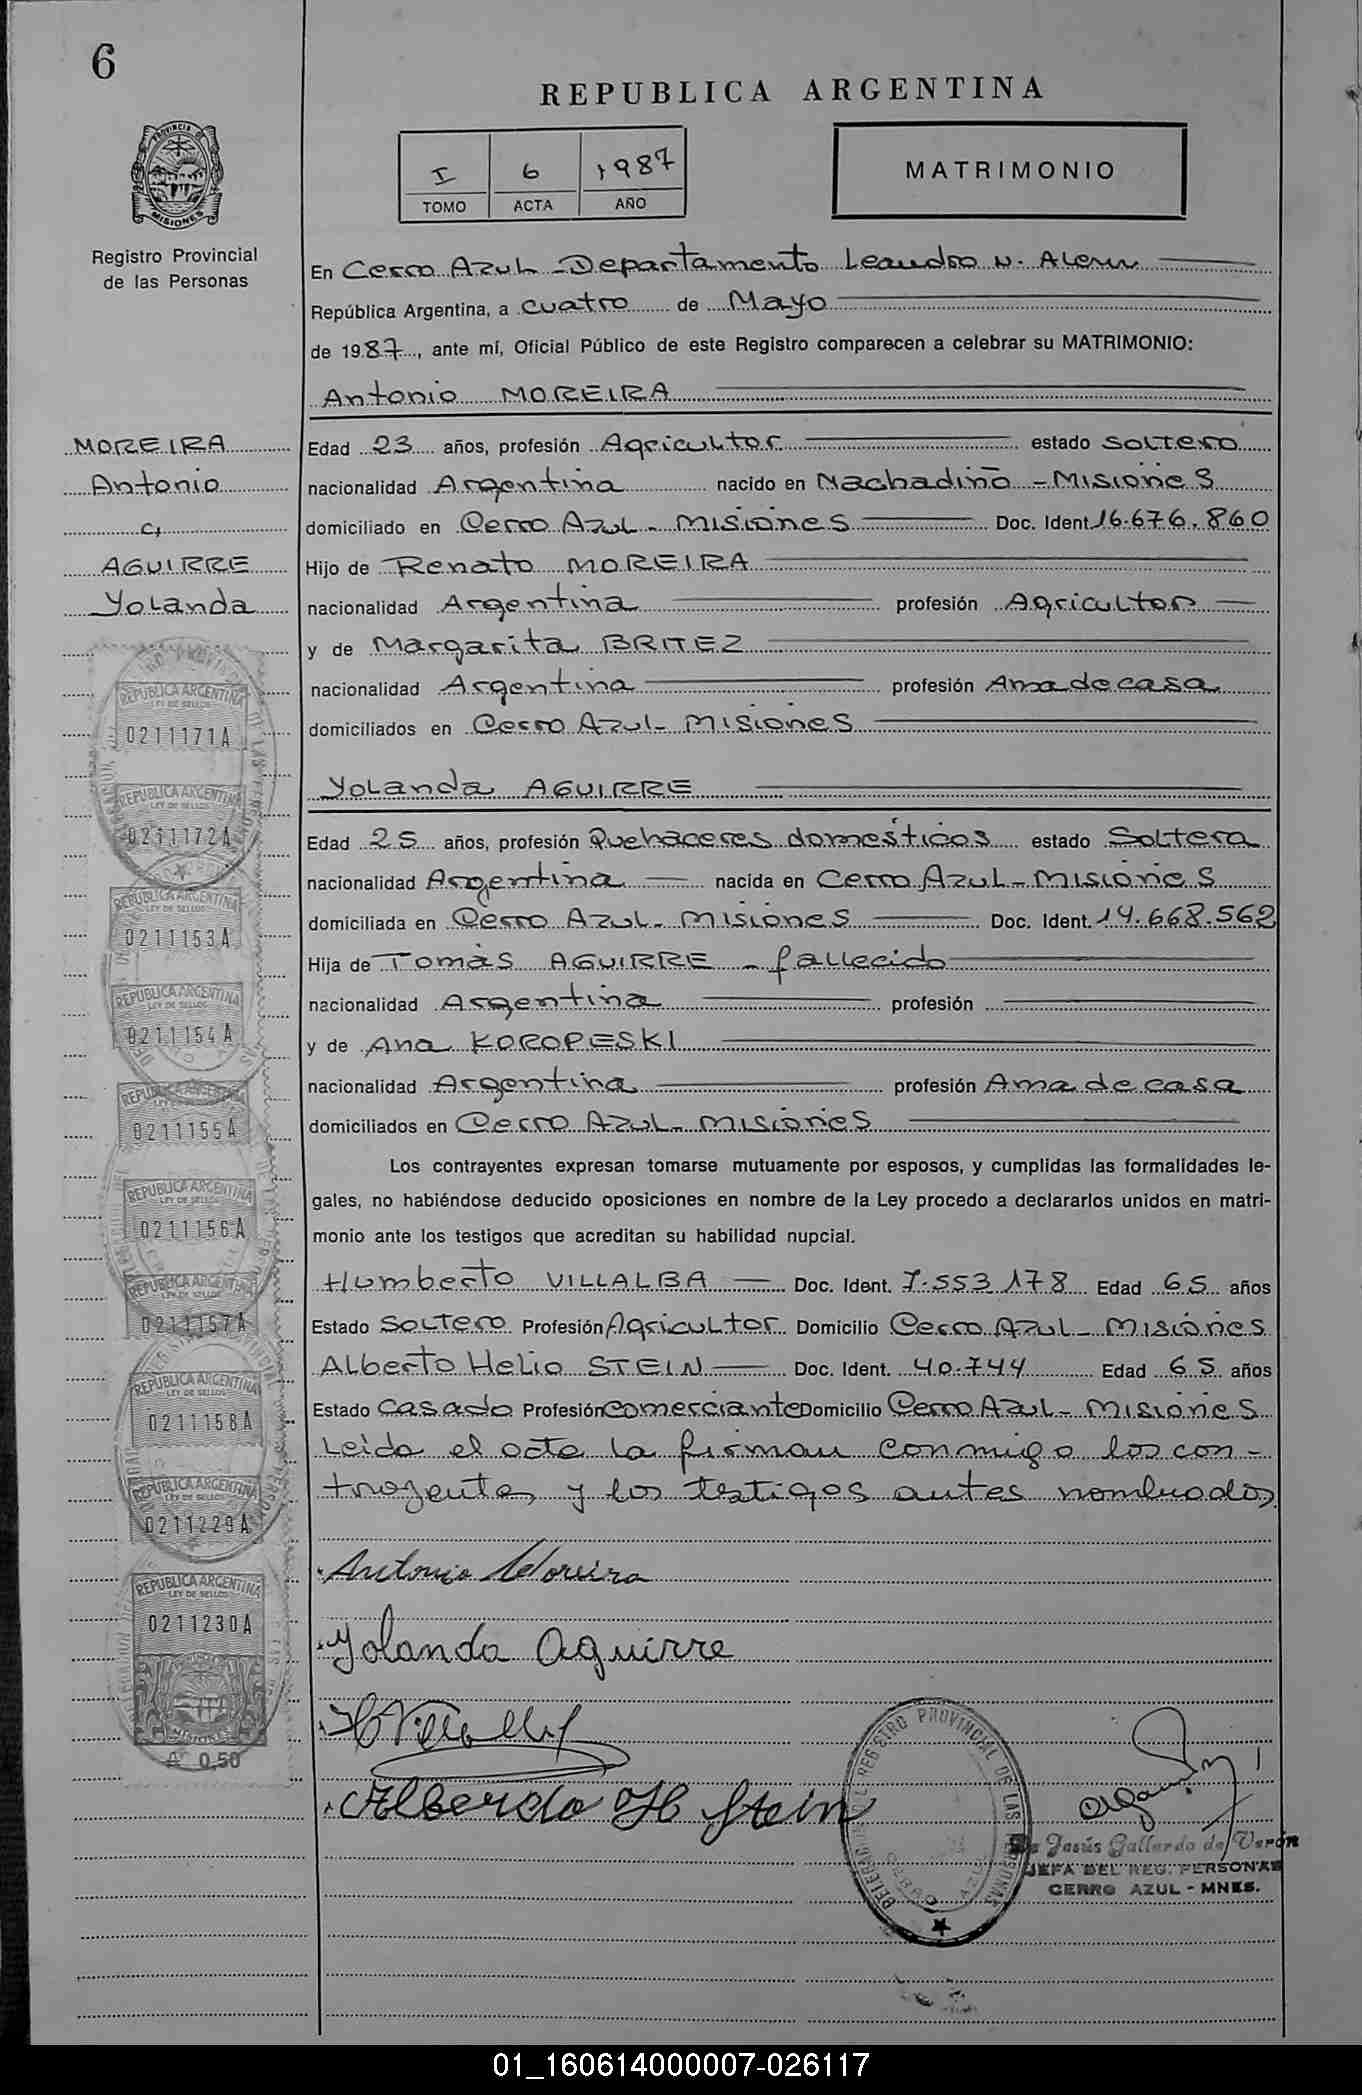 6
REPUBLICA ARGENTINA
I 6 1987
TOMO ACTA AÑO
MATRIMONIO
PROVINCIA DE
MISIONES
Registro Provincial
de las Personas
En Cerro Azul - Departamento Leandro N. Alem
República Argentina, a cuatro de Mayo
de 1987, ante mí, Oficial Público de este Registro comparecen a celebrar su MATRIMONIO:
Antonio MOREIRA
MOREIRA
Antonio
c/
AGUIRRE
Yolanda
Edad 23 años, profesión Agricultor estado soltero
nacionalidad Argentina nacido en Machadiño - Misiones
domiciliado en Cerro Azul - Misiones Doc. Ident. 16.676.860
Hijo de Renato MOREIRA
nacionalidad Argentina profesión Agricultor
y de Margarita BRITEZ
nacionalidad Argentina profesión Ama de casa
domiciliados en Cerro Azul - Misiones
Yolanda AGUIRRE
Edad 25 años, profesión Quehaceres domésticos estado Soltera
nacionalidad Argentina nacida en Cerro Azul - Misiones
domiciliada en Cerro Azul - Misiones Doc. Ident. 14.668.562
Hija de Tomás AGUIRRE - fallecido
nacionalidad Argentina profesión
y de Ana KOROPESKI
nacionalidad Argentina profesión Ama de casa
domiciliados en Cerro Azul - Misiones
Los contrayentes expresan tomarse mutuamente por esposos, y cumplidas las formalidades le-
gales, no habiéndose deducido oposiciones en nombre de la Ley procedo a declararlos unidos en matri-
monio ante los testigos que acreditan su habilidad nupcial.
Humberto VILLALBA Doc. Ident. 7.553.178 Edad 65 años
Estado Soltero Profesión Agricultor Domicilio Cerro Azul - Misiones
Alberto Helio STEIN Doc. Ident. 40.744 Edad 65 años
Estado Casado Profesión comerciante Domicilio Cerro Azul - Misiones
Leida el acta la firman conmigo los con-
trayentes y los testigos antes nombrados
Antonio Moreira
Yolanda Aguirre
H Villalba
Alberdo H Stein
REPUBLICA ARGENTINA
LEY DE SELLOS
0211171A
REPUBLICA ARGENTINA
LEY DE SELLOS
0211172A
REPUBLICA ARGENTINA
LEY DE SELLOS
0211153A
REPUBLICA ARGENTINA
LEY DE SELLOS
0211154A
REPUBLICA ARGENTINA
LEY DE SELLOS
0211155A
REPUBLICA ARGENTINA
LEY DE SELLOS
0211156A
REPUBLICA ARGENTINA
LEY DE SELLOS
0211157A
REPUBLICA ARGENTINA
LEY DE SELLOS
0211158A
REPUBLICA ARGENTINA
LEY DE SELLOS
0211229A
REPUBLICA ARGENTINA
LEY DE SELLOS
0211230A
MISIONES
A 0,50
REGISTRO PROVINCIAL DE LAS PERSONAS
CERRO AZUL
de Jesús Gallardo de Verón
JEFA DEL REG. PERSONAS
CERRO AZUL - MNES.
01_160614000007-026117